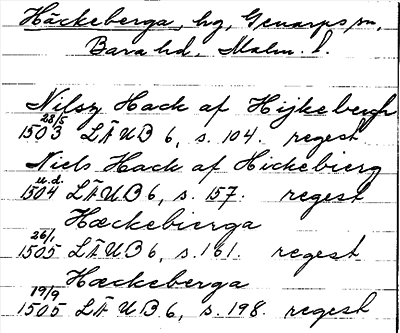 Häckeberga, hg, Genarps sn,
Bara hd, Malm. l.
Nilsz Hack af Hijkebergh
28/5
1503 LÄUB 6, s. 104. regest
Niels Hack af Hickebierg
u.d.
1504 LÄUB 6, s. 157. regest
Hæckebierga
26/1
1505 LÄUB 6, s. 161. regest
Hæckeberga
19/9
1505 LÄUB 6, s. 198. regest